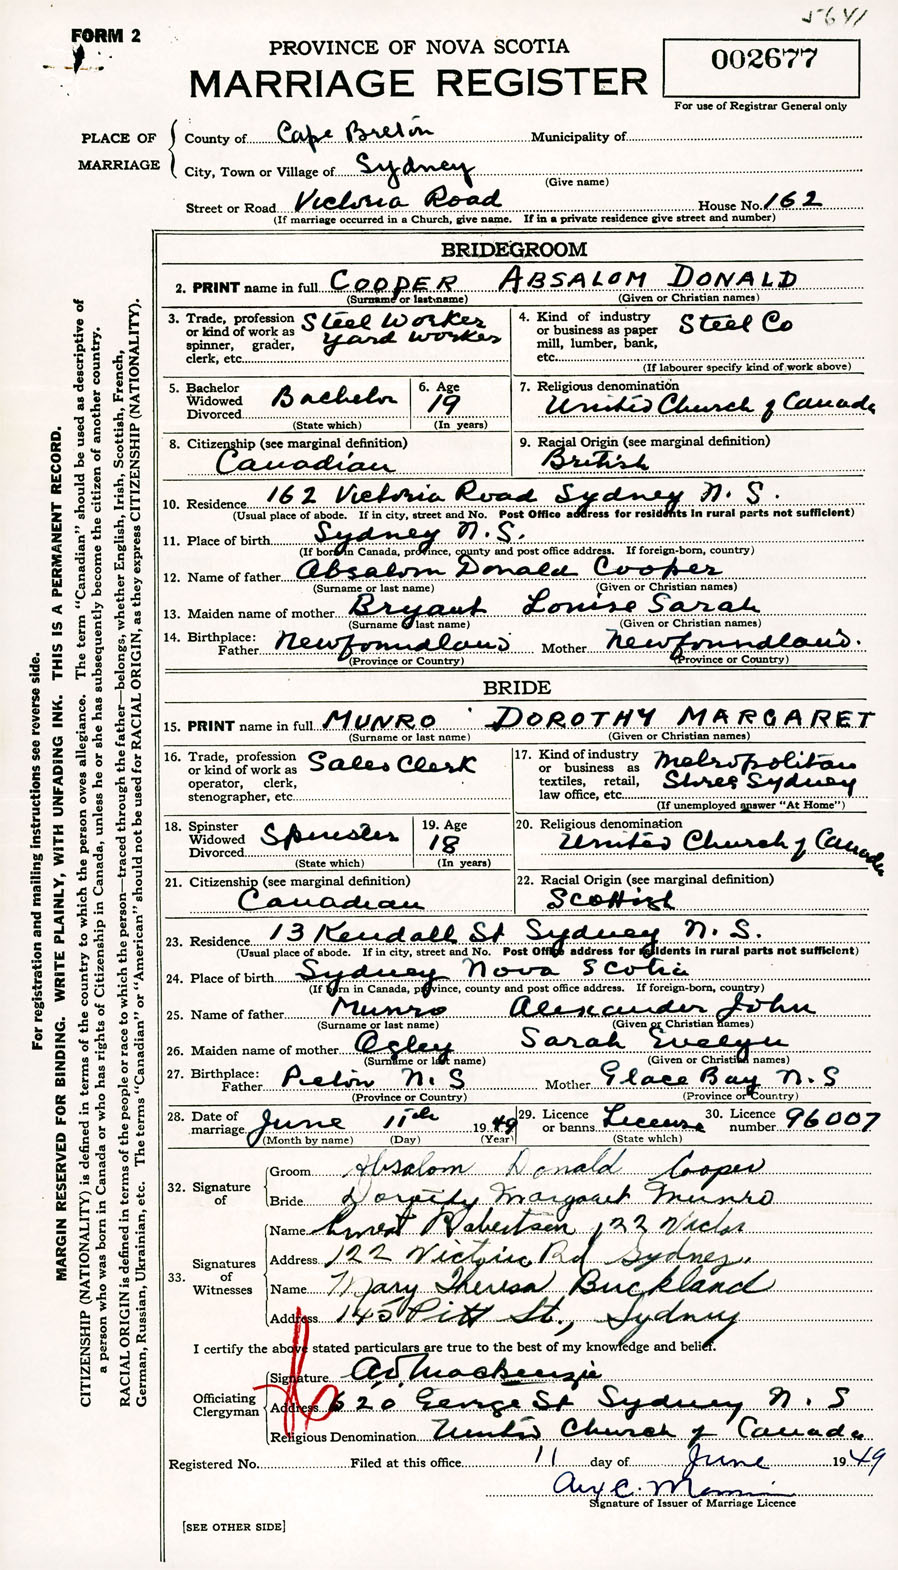 5641
FORM 2
PROVINCE OF NOVA SCOTIA
MARRIAGE REGISTER
002677
For use of Registrar General only
PLACE OF MARRIAGE
County of Cape Breton Municipality of
City, Town or Village of Sydney
(Give name)
Street or Road Victoria Road House No. 162
(If marriage occurred in a Church, give name. If in a private residence give street and number)
BRIDEGROOM
2. PRINT name in full COOPER ABSALOM DONALD
(Surname or last name) (Given or Christian names)
3. Trade, profession or kind of work as spinner, grader, clerk, etc. Steel Worker Yard Worker
4. Kind of industry or business as paper mill, lumber, bank, etc. Steel Co
(If labourer specify kind of work above)
5. Bachelor Widowed Divorced Bachelor
(State which)
6. Age 19
(In years)
7. Religious denomination
United Church of Canada
8. Citizenship (see marginal definition)
Canadian
9. Racial Origin (see marginal definition)
British
10. Residence 162 Victoria Road Sydney N. S.
(Usual place of abode. If in city, street and No. Post Office address for residents in rural parts not sufficient)
11. Place of birth Sydney N. S.
(If born in Canada, province, county and post office address. If foreign-born, country)
12. Name of father Absalom Donald Cooper
(Surname or last name) (Given or Christian names)
13. Maiden name of mother Bryant Louise Sarah
(Surname or last name) (Given or Christian names)
14. Birthplace: Father Newfoundland Mother Newfoundland.
(Province or Country) (Province or Country)
BRIDE
15. PRINT name in full MUNRO DOROTHY MARGARET
(Surname or last name) (Given or Christian names)
16. Trade, profession or kind of work as operator, clerk, stenographer, etc. Sales Clerk
17. Kind of industry or business as textiles, retail, law office, etc. Metropolitan Store Sydney
(If unemployed answer "At Home")
18. Spinster Widowed Divorced Spinster
(State which)
19. Age 18
(In years)
20. Religious denomination
United Church of Canada
21. Citizenship (see marginal definition)
Canadian
22. Racial Origin (see marginal definition)
Scottish
23. Residence 13 Kendall St Sydney N. S.
(Usual place of abode. If in city, street and No. Post Office address for residents in rural parts not sufficient)
24. Place of birth Sydney Nova Scotia
(If born in Canada, province, county and post office address. If foreign-born, country)
25. Name of father Munro Alexander John
(Surname or last name) (Given or Christian names)
26. Maiden name of mother Ogley Sarah Evelyn
(Surname or last name) (Given or Christian names)
27. Birthplace: Father Pictou N. S Mother Glace Bay N. S
(Province or Country) (Province or Country)
28. Date of marriage June 11th 1949
(Month by name) (Day) (Year)
29. Licence or banns License
(State which)
30. Licence number 96007
32. Signature of
Groom Absalom Donald Cooper
Bride Dorothy Margaret Munro
33. Signatures of Witnesses
Name Ernest Robertson 122 Victor
Address 122 Victoria Rd Sydney.
Name Mary Theresa Buckland
Address 145 Pitt St., Sydney
I certify the above stated particulars are true to the best of my knowledge and belief.
Officiating Clergyman
Signature Mackenzie
Address 620 George St Sydney N. S
Religious Denomination United Church of Canada
Registered No. Filed at this office 11 day of June 1949
Signature of Issuer of Marriage Licence
[SEE OTHER SIDE]
For registration and mailing instructions see reverse side.
MARGIN RESERVED FOR BINDING. WRITE PLAINLY, WITH UNFADING INK. THIS IS A PERMANENT RECORD.
CITIZENSHIP (NATIONALITY) is defined in terms of the country to which the person owes allegiance. The term "Canadian" should be used as descriptive of
a person who was born in Canada or who has rights of Citizenship in Canada, unless he or she has subsequently become the citizen of another country.
RACIAL ORIGIN is defined in terms of the people or race to which the person—traced through the father—belongs, whether English, Irish, Scottish, French,
German, Russian, Ukrainian, etc. The terms "Canadian" or "American" should not be used for RACIAL ORIGIN, as they express CITIZENSHIP (NATIONALITY).